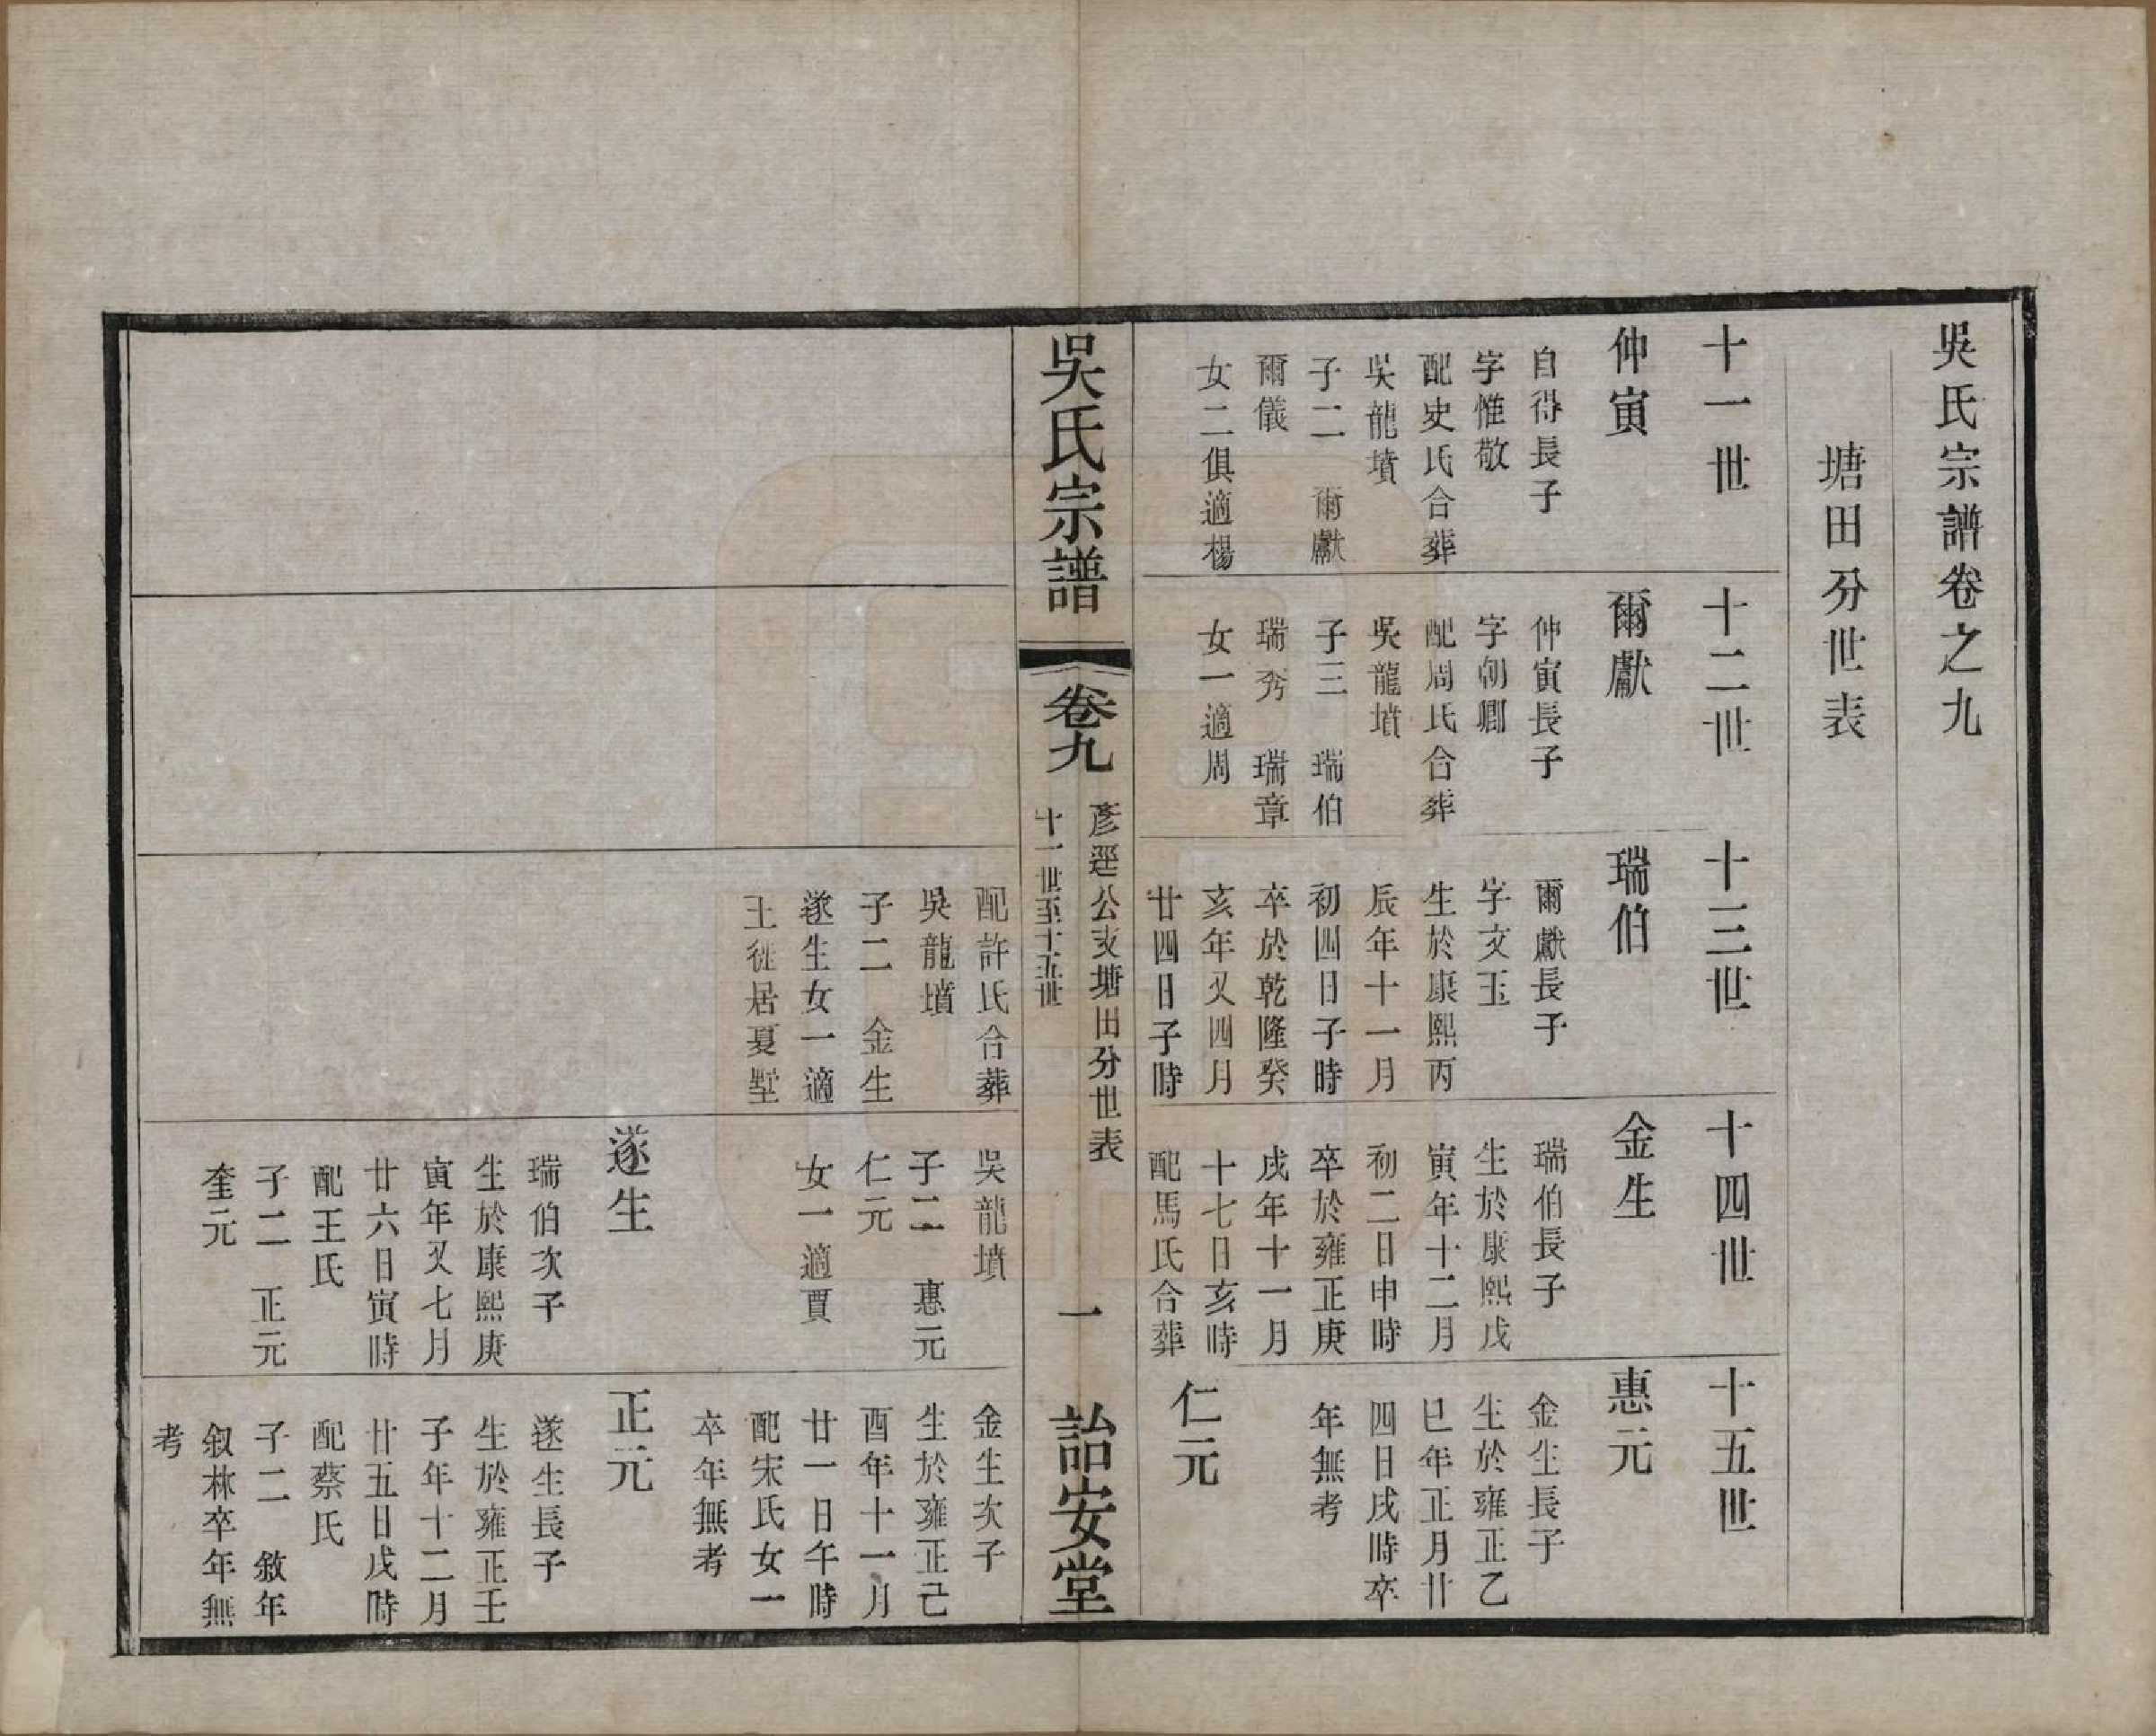 吳氏宗譜卷之九
塘田分世表
十一世
仲寅
自得長子
字惟敬
配史氏合葬
吳龍墳
子二　爾獻
爾儀
女二俱適楊
十二世
爾獻
仲寅長子
字朝卿
配周氏合葬
吳龍墳
子三　瑞伯
瑞秀　瑞章
女一適周
十三世
瑞伯
爾獻長子
字文玉
生於康熙丙
辰年十一月
初四日子時
卒於乾隆癸
亥年又四月
廿四日子時
十四世
金生
瑞伯長子
生於康熙戊
寅年十二月
初二日申時
卒於雍正庚
戌年十一月
十七日亥時
配馬氏合葬
十五世
惠元
金生長子
生於雍正乙
巳年正月廿
四日戌時卒
年無考
仁元
吳氏宗譜
卷九
彥逕公支塘田分世表
十一世至十五世
一
詒安堂
配許氏合葬
吳龍墳
子二　金生
遂生女一適
王徙居夏墅
吳龍墳
子二　惠元
仁元
女一適賈
遂生
瑞伯次子
生於康熙庚
寅年又七月
廿六日寅時
配王氏
子二　正元
奎元
金生次子
生於雍正己
酉年十一月
廿一日午時
配宋氏女一
卒年無考
正元
遂生長子
生於雍正壬
子年十二月
廿五日戌時
配蔡氏
子二　敘年
叙林卒年無
考